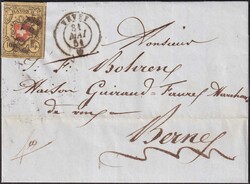 10
VEVEY
31
MAI
51
Monsieur
F. Bohren
Maison Guiraud-Faures Marchan
de vin
Berne